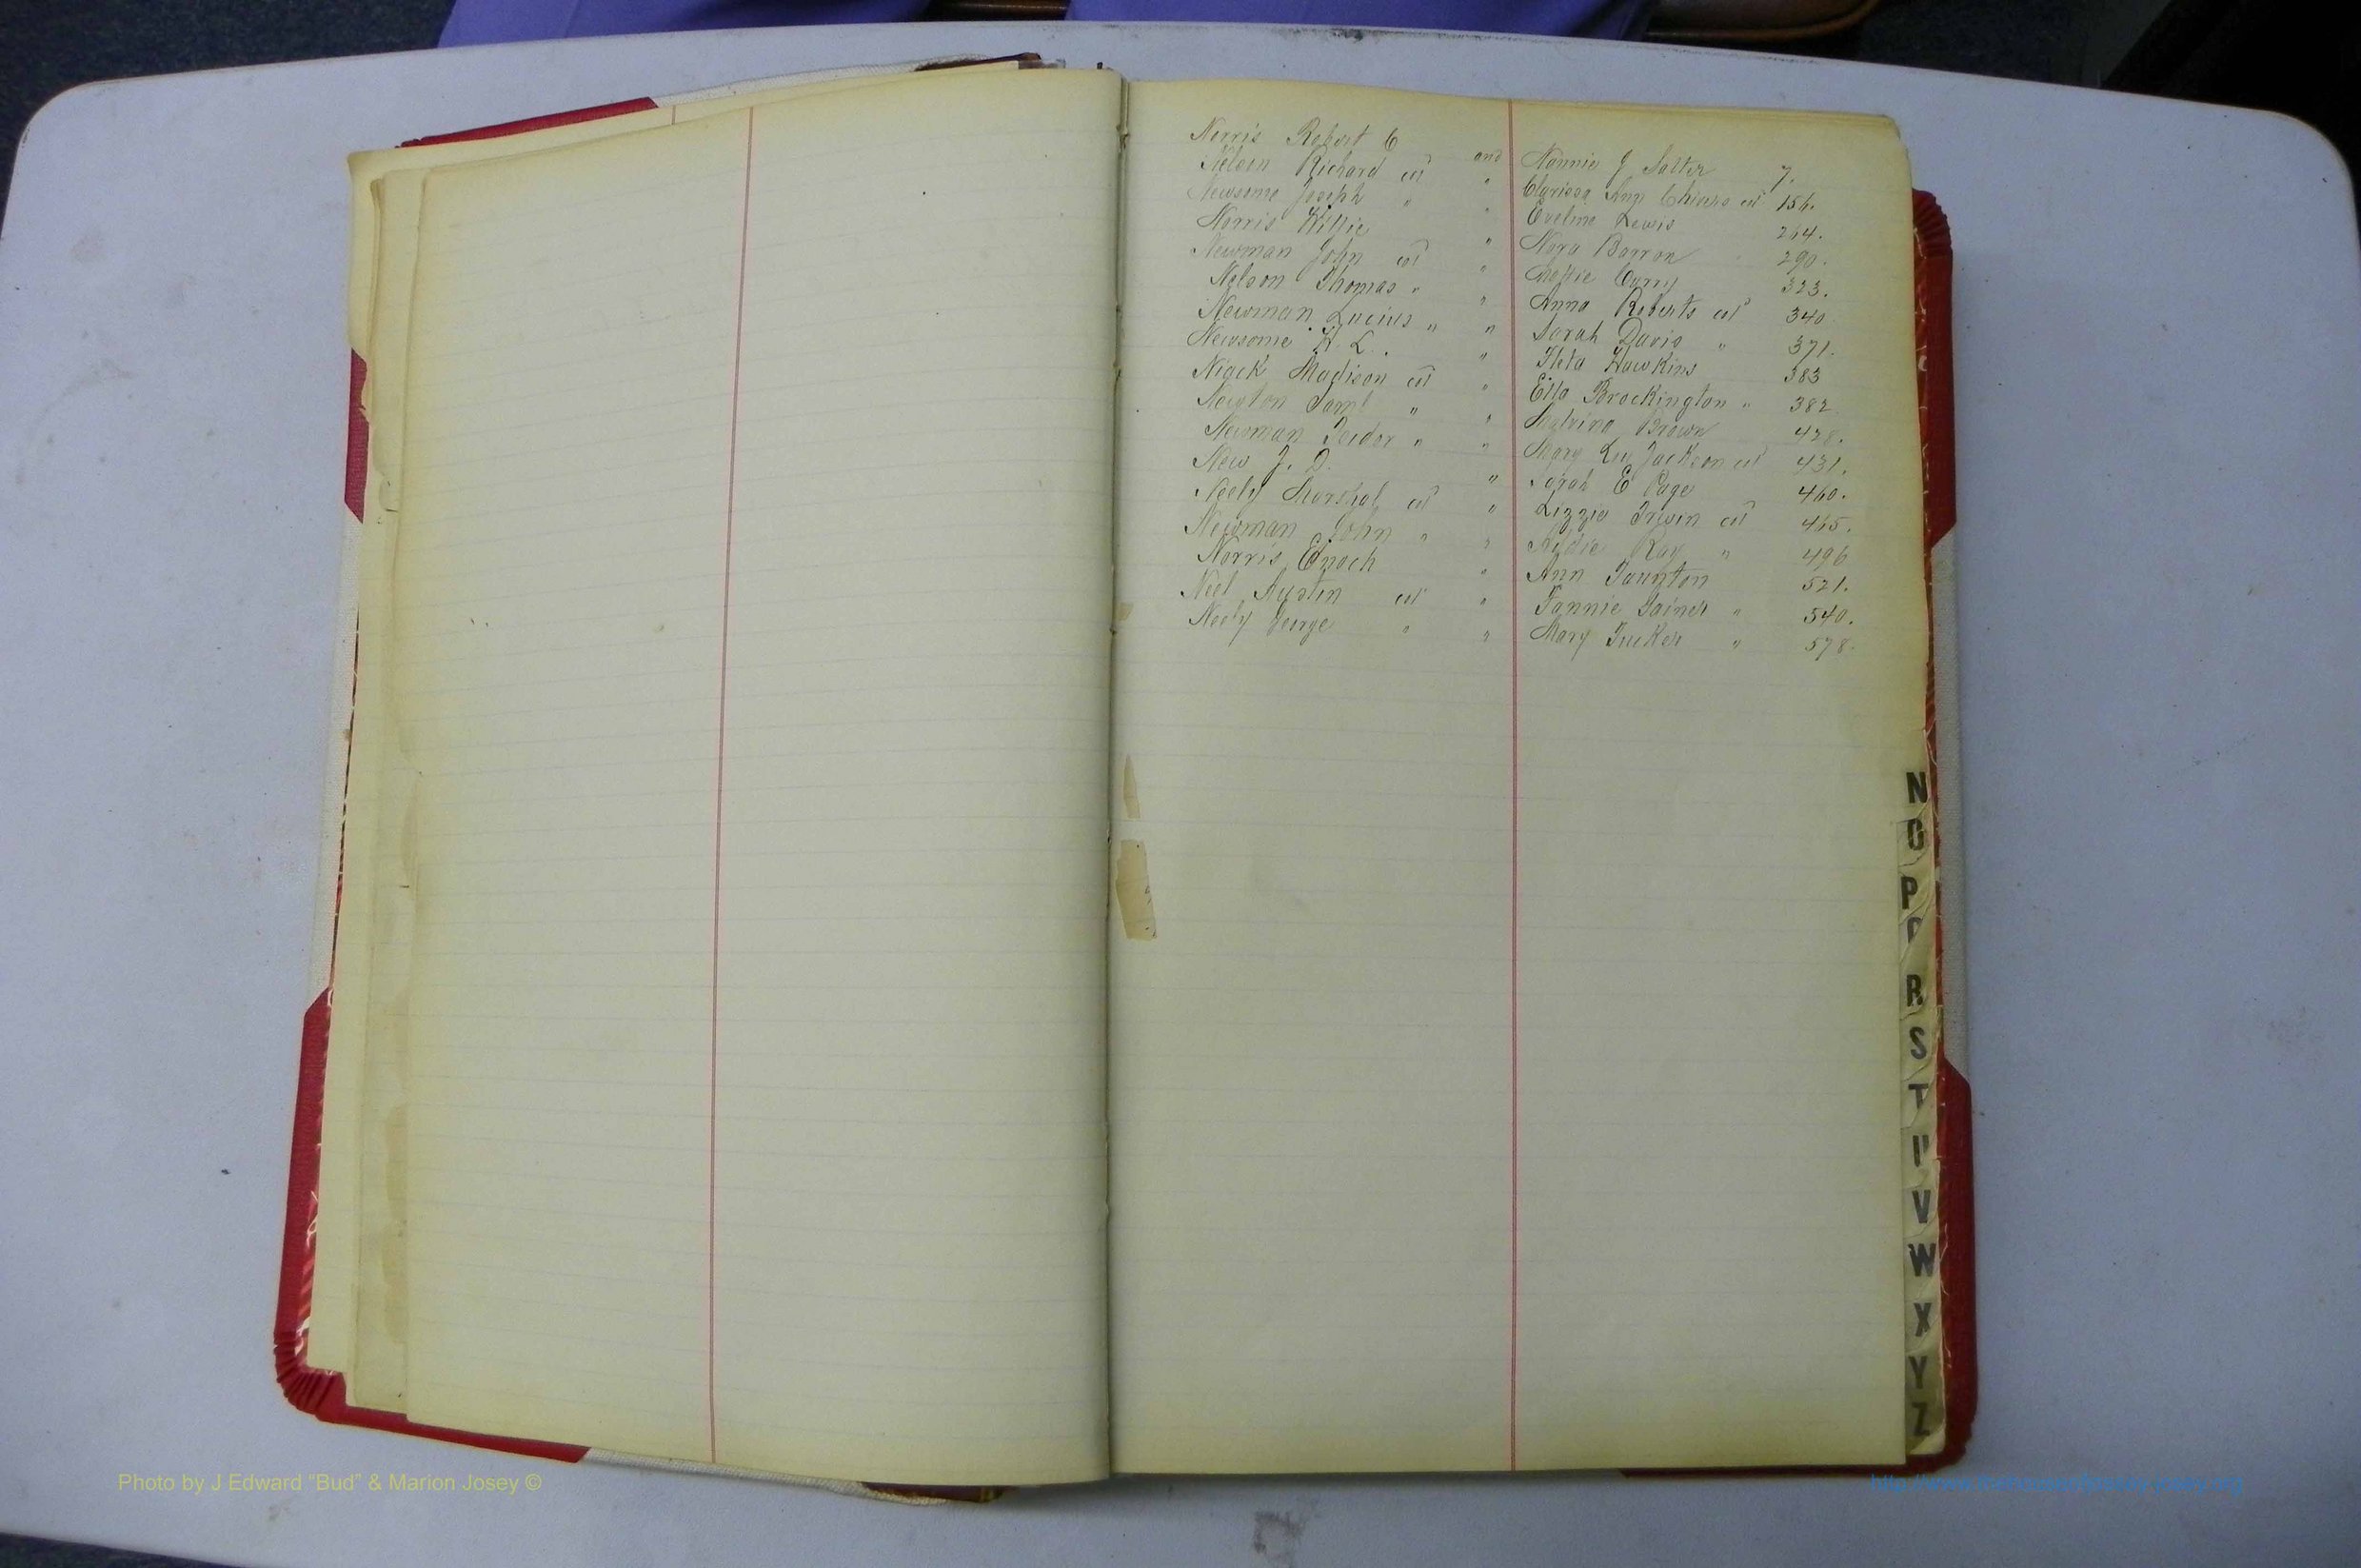 Norris Robert C and Nannie J Salter 7.
Nelson Richard col " Clarissa Ann Chivers col 156.
Newsome Joseph " " Eveline Lewis 264.
Norris Willie " Nora Barron 290.
Newman John col " Mattie Curry 323.
Nelson Thomas " " Anna Roberts col 340
Newman Lucius " " Sarah Davis " 371.
Newsome H. L. " Fleta Hawkins 383
Niack Madison col " Ella Brockington " 382
Newton Saml " " Malvina Brown 428.
Newman " " Mary Lu Jackson col 431.
New J. D. " Sarah E Page 460.
Neely Marshal col " Lizzie Irwin col 465.
Newman John " " Ray " 496
Norris Enoch " Ann Taunton 521.
Neel Austin col " Fannie Gaines " 540.
Neely George " " Mary Tucker " 578.
N
O
P
R
S
T
U
V
W
X
Y
Z
Photo by J Edward “Bud” & Marion Josey ©